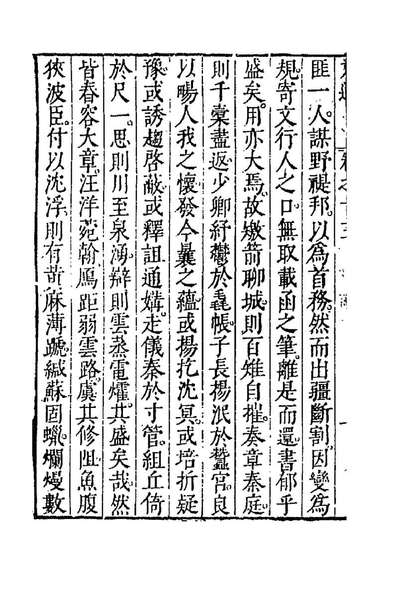 卷之十三
匪一人。謀野禔邦。以為首務。然而出疆斷割。因變為
規。寄文行人之口。無取載函之筆。離是而還。書郁乎
盛矣。用亦大焉。故燉箭聊城。則百雉自摧。奏章秦庭。
則千橐盡返。少卿紓鬱於毳帳。子長揚泯於蠶宮。良
以暢人我之懷。發今曩之蘊。或揚扢沈冥。或培折疑
豫。或誘趨啓蔽。或釋詛通媾。走儀秦於寸管。組丘倚
於尺一。思則川至泉湧。辯則雲蒸電燿。共盛矣哉。然
皆春容大章。汪洋菀翰。鴈距弱雲路。虞其修阻。魚腹
狹波臣。付以沈浮。則有苛麻薄蹏。緘蘇固蠟。爛熳數